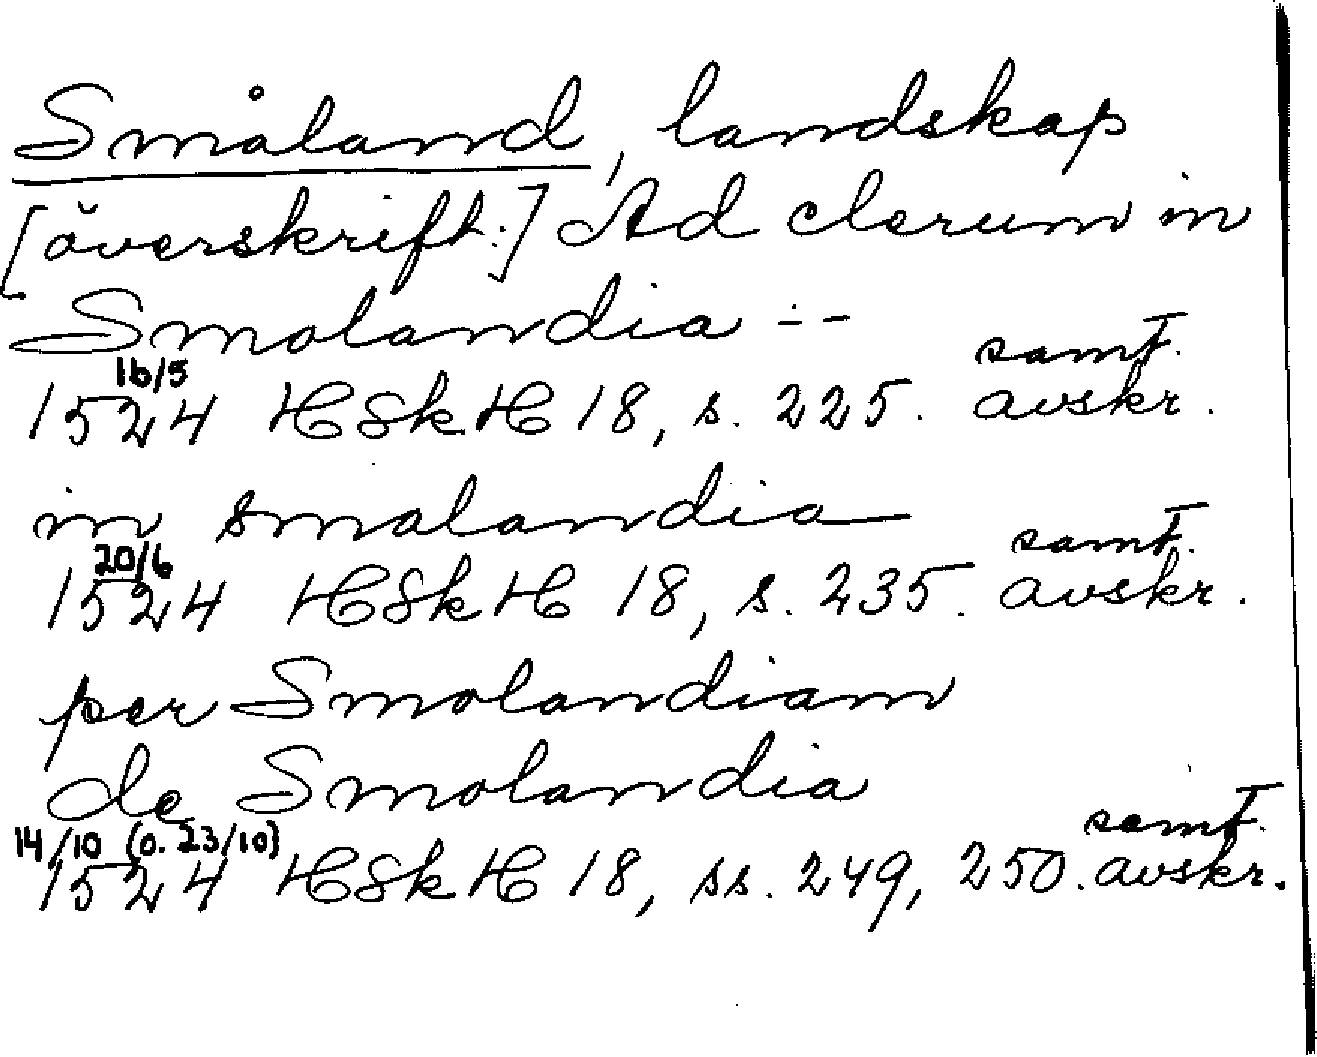 Småland, landskap
[överskrift:] Ad clerum in
Smolandia --
samt.
16/5
1524 HSkH 18, s. 225. avskr.
in smalandia
samt.
20/6
1524 HSkH 18, s. 235. avskr.
per Smolandiam
de Smolandia
samt.
14/10 (o. 23/10)
1524 HSkH 18, ss. 249, 250. avskr.